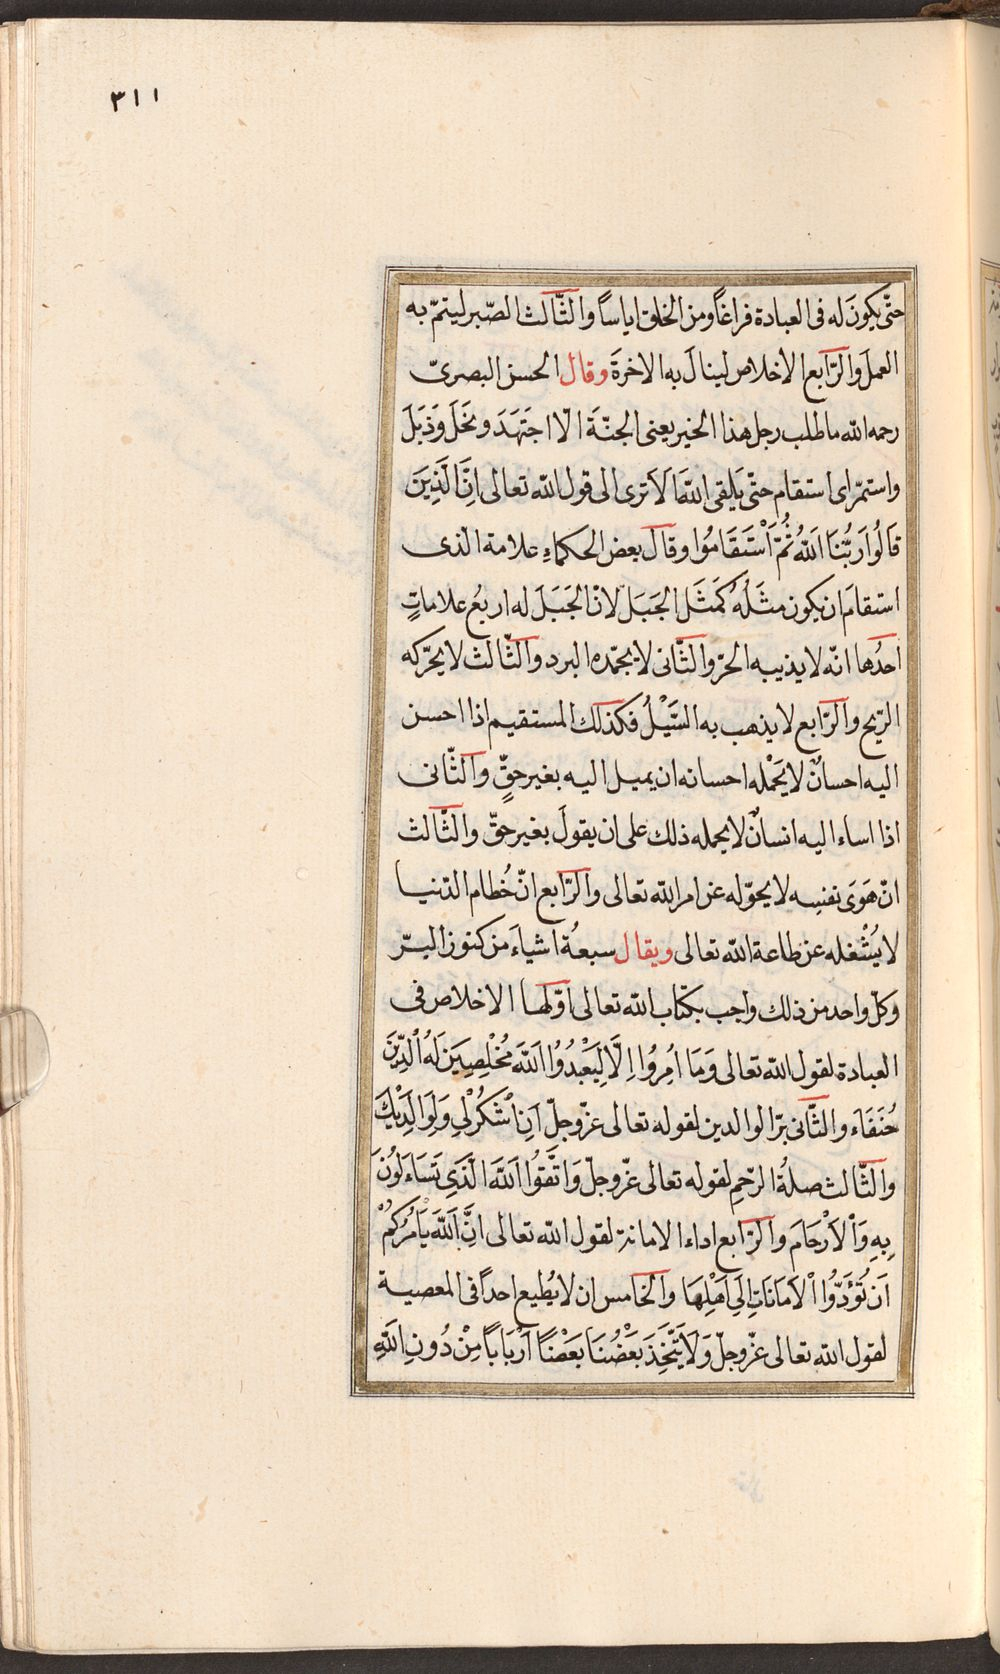 ٣١١
حتّى يكونَ له فى العبادة فراغاً ومن الخلق اياساً والثّالث الصّبر ليتمّ به
العملَ والرّابع الاخلاص لينالَ به الاخرةَ وقال الحسن البصرىّ
رحمه الله ما طلب رجل هذا الخير يعنى الجنّةَ الّا اجتَهَدَ ونحَلَ وَذَبَلَ
واستمرّ اى استقام حتّى يَلقى اللهَ اَلَا ترى الى قول الله تعالى اِنَّ الَّذِينَ
قَالُوا رَبُّنَا اللهُ ثُمَّ اسْتَقَامُوا وقال بعض الحكماءِ علامة الّذى
استقامَ ان يكون مثَلُهُ كمَثَل الجَبَل لانّ الجَبَلَ له اربعُ علاماتٍ
احدُها انّه لا يذيبه الحرّ والثّانى لا يجمّده البرد والثّالث لا يحرّكه
الرّيح والرّابع لا يذهب به السَّيْلُ فكذلك المستقيم اذا احسن
اليه احسانٌ لا يَحْمله احسانه ان يميل اليه بغير حقٍّ والثّانى
اذا اساء اليه انسانٌ لا يحمله ذلك على ان يقولَ بغير حقّ والثّالث
انّ هَوَى نفسِه لا يحوّله عن امر الله تعالى والرّابع انّ حُطام الدّنيا
لا يُشْغله عن طاعة الله تعالى ويقال سبعةُ اشياءَ من كنوز البِرّ
وكلّ واحد من ذلك واجب بكتاب الله تعالى اوّلها الاخلاص فى
العبادة لقول الله تعالى وَمَا اُمِرُوا اِلَّا لِيَعْبُدُوا اللهَ مُخْلِصِينَ لَهُ الدِّينَ
حُنَفَاءَ والثّانى برّ الوالدين لقوله تعالى عزّ وجلّ اَنِ اشْكُرْ لِي وَلِوَالِدَيْكَ
والثّالث صلةُ الرّحمِ لقوله تعالى عزّ وجلّ وَاتَّقُوا اللهَ الَّذِي تَسَاءَلُونَ
بِهِ وَالْاَرْحَامَ والرّابع اداء الامانة لقول الله تعالى اِنَّ اللهَ يَأْمُرُكُمْ
اَنْ تُؤَدُّوا الْاَمَانَاتِ اِلَى اَهْلِهَا والخامس ان لا يُطيع احداً فى المعصية
لقول الله تعالى عزّ وجلّ وَلَا يَتَّخِذَ بَعْضُنَا بَعْضًا اَرْبَابًا مِنْ دُونِ اللهِ